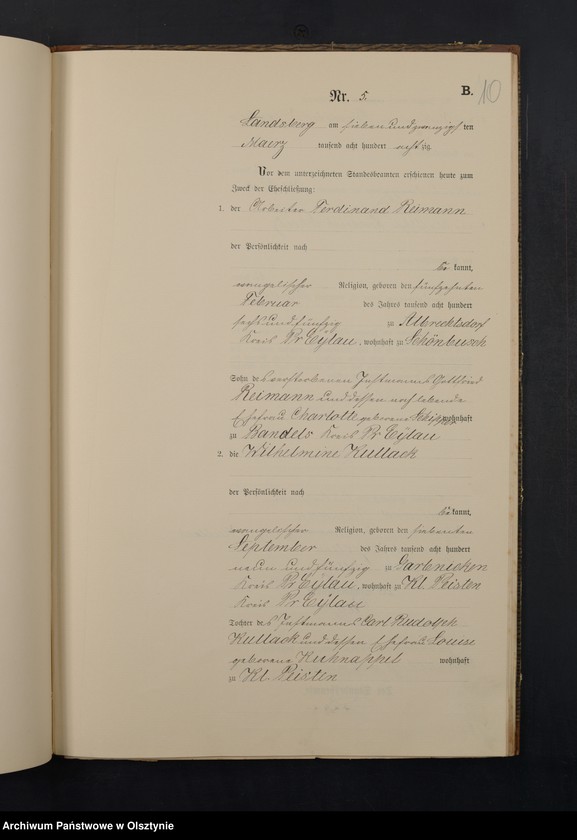 Nr. 5.
B.
10
Landsberg am sieben und zwanzigs ten
Maerz tausend acht hundert acht zig.
Vor dem unterzeichneten Standesbeamten erschienen heute zum
Zweck der Eheschließung:
1. der Arbeiter Ferdinand Reimann
der Persönlichkeit nach
be kannt,
evangelischer Religion, geboren den fünfzehnten
Februar des Jahres tausend acht hundert
sechs und fünfzig zu Albrechtsdorf
Kreis Pr Eylau, wohnhaft zu Schönbusch
Sohn des verstorbenen Instmanns Gottlried
Reimann und dessen noch lebende
Ehefrau Charlotte geborene wohnhaft
zu Bandels Kreis Pr Eylau
2. die Wilhelmine Kullack
der Persönlichkeit nach
be kannt,
evangelischer Religion, geboren den siebenten
September des Jahres tausend acht hundert
neun und fünfzig zu Garbnicken
Kreis Pr Eylau, wohnhaft zu Kl. Peisten
Kreis Pr Eylau
Tochter des Instmanns Carl Rudolph
Kullack und dessen Ehefrau Louise
geborene Kuhnappel wohnhaft
zu Kl. Peisten
Archiwum Państwowe w Olsztynie